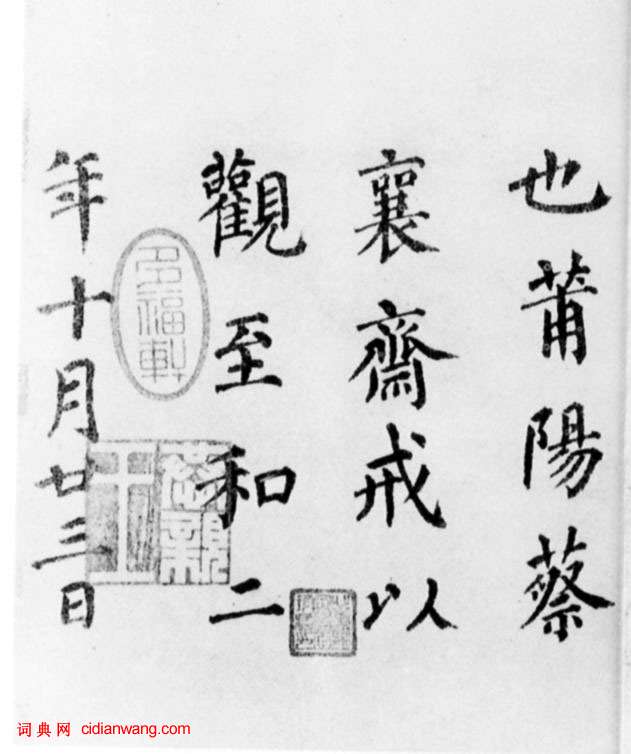 也莆陽蔡
襄齋戒以
觀至和二
年十月廿三日
多福軒
词典网 cidianwang.com